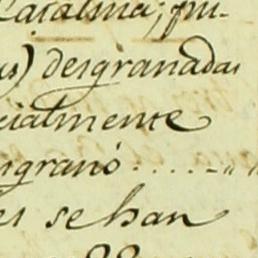 Catalina; pri-
us) desgranadas
cialmente
sgranó ...... " "
es se han